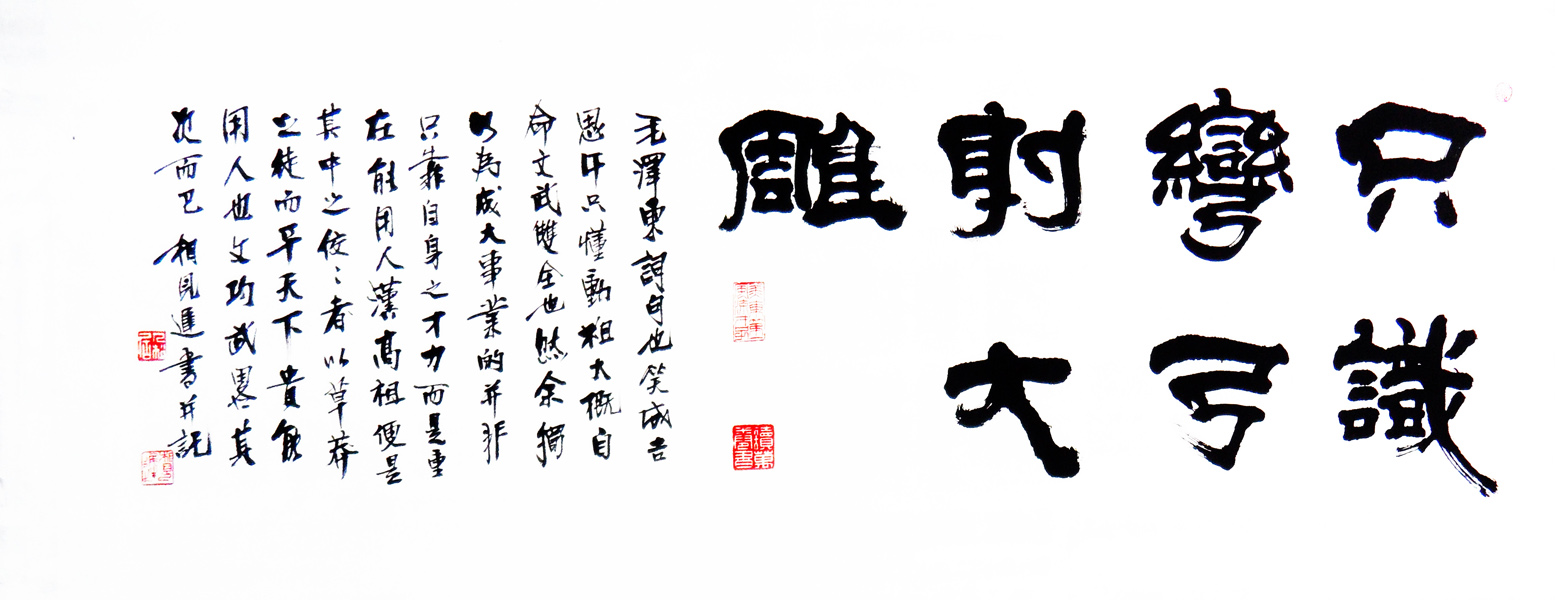 只識
彎弓
射大
雕
毛澤東詞句也笑成吉
思汗只懂動粗大概自
命文武雙全也然余獨
以為成大事業的并非
只靠自身之才力而是重
在能用人漢高祖便是
其中之佼〻者以草莽
之徒而平天下貴能
用人也文功武畧其
而已 書并記